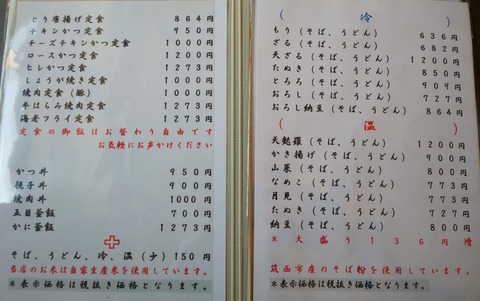 とり唐揚げ定食 864円
チキンかつ定食 950円
チーズチキンかつ定食 1000円
ロースかつ定食 1200円
ヒレかつ定食 1273円
しょうが焼き定食 1000円
焼肉定食(豚) 1000円
牛はらみ焼肉定食 1273円
海老フライ定食 1273円
定食の御飯はお替わり自由です
お気軽にお声がけください
かつ丼 950円
親子丼 900円
焼肉丼 1000円
五目釜飯 700円
かに釜飯 1273円
そば、うどん、冷、温(少)150円
当店のお米は自家生産米を使用しています。
*表示価格は税抜き価格となります。
(冷)
もり(そば、うどん) 636円
ざる(そば、うどん) 682円
天ざる(そば、うどん) 1200円
たぬき(そば、うどん) 850円
とろろ(そば、うどん) 909円
おろし(そば、うどん) 727円
おろし納豆(そば、うどん) 864円
(温)
天麩羅(そば、うどん) 1200円
かき揚げ(そば、うどん) 900円
山菜(そば、うどん) 850円
なめこ(そば、うどん) 773円
月見(そば、うどん) 773円
たぬき(そば、うどん) 727円
納豆(そば、うどん) 850円
*大盛り136円増
筑西市産のそば粉を使用しています。
*表示価格は税抜き価格となります。